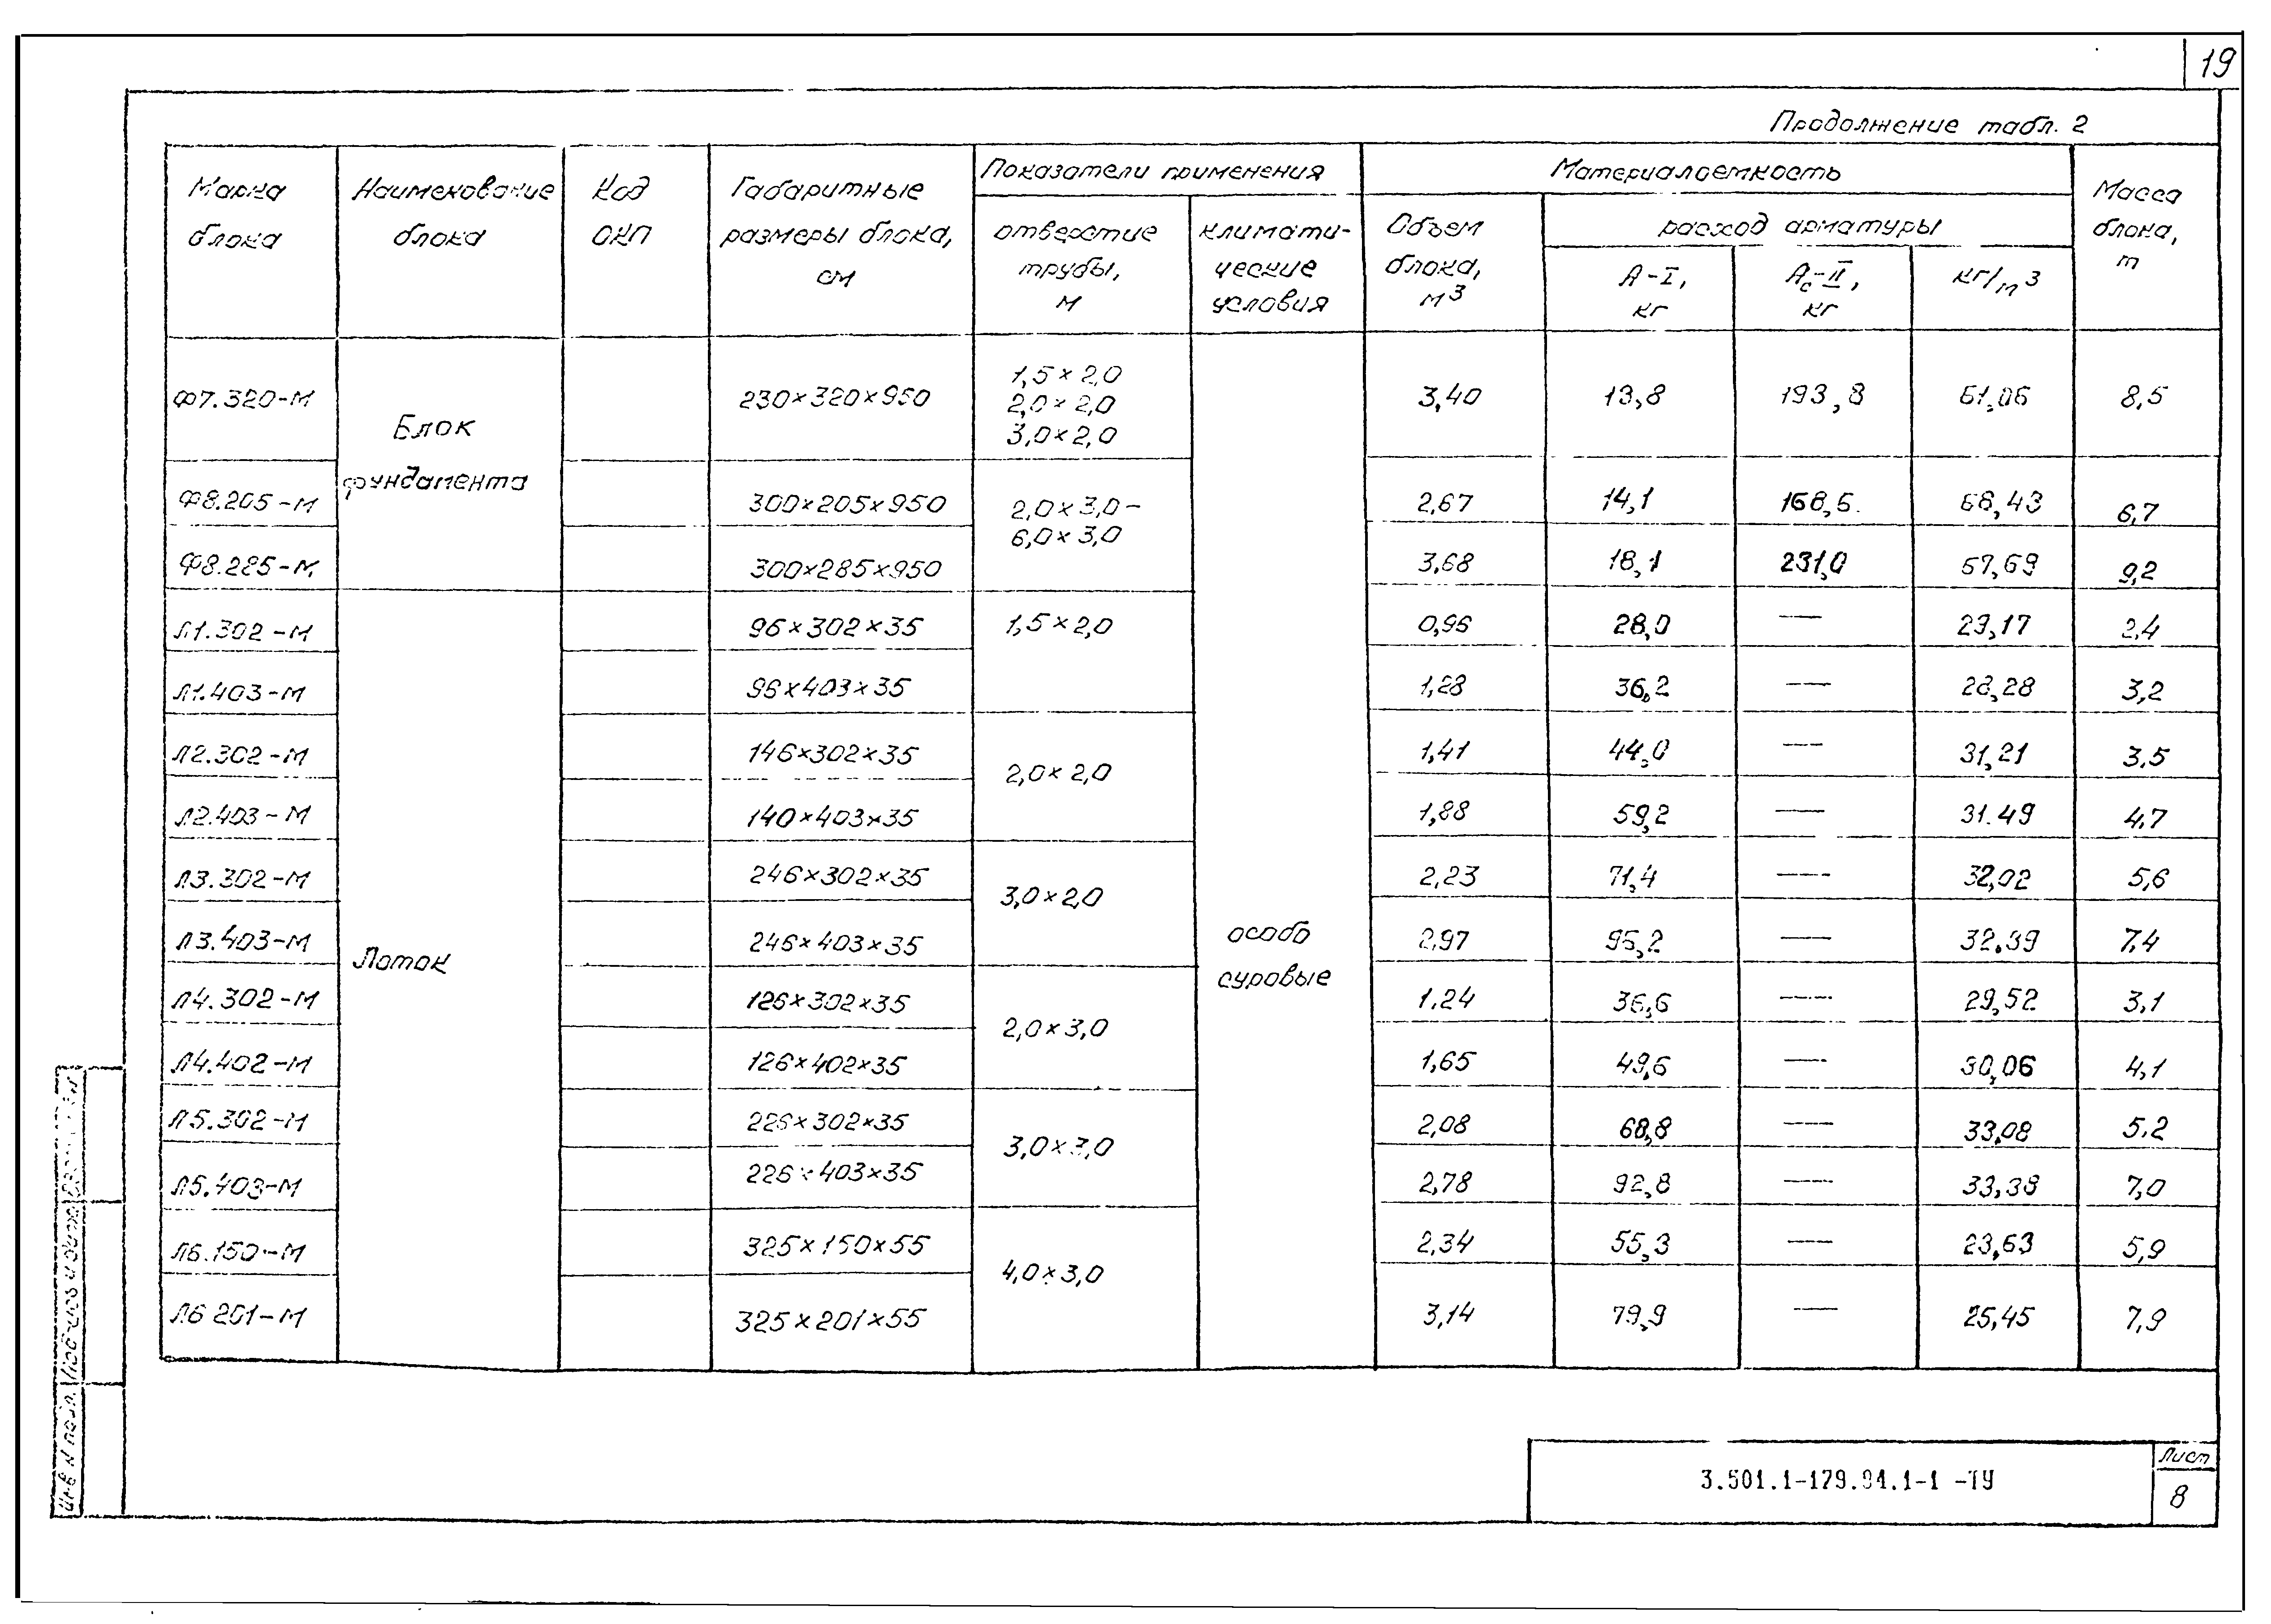 19
Продолжение табл. 2
Марка блока
Наименование блока
Код ОКП
Габаритные размеры блока, см
Показатели применения
отверстие трубы, м
климати-ческие условия
Материалоемкость
Объем блока, м3
расход арматуры
А-I, кг
Ас-II, кг
кг/м3
Масса блока, т
Блок фундамента
Ф7.320-М 230×320×950 1,5×2,0 2,0×2,0 3,0×2,0 3,40 13,8 193,8 61,06 8,5
Ф8.205-М 300×205×950 2,0×3,0- 6,0×3,0 2,67 14,1 168,6 68,43 6,7
Ф8.285-М 300×285×950 3,68 18,1 231,0 67,69 9,2
Лоток
особо суровые
Л1.302-М 96×302×35 1,5×2,0 0,96 28,0 — 29,17 2,4
Л1.403-М 96×403×35 1,28 36,2 — 28,28 3,2
Л2.302-М 146×302×35 2,0×2,0 1,41 44,0 — 31,21 3,5
Л2.403-М 140×403×35 1,88 59,2 — 31.49 4,7
Л3.302-М 246×302×35 3,0×2,0 2,23 71,4 — 32,02 5,6
Л3.403-М 246×403×35 2,97 96,2 — 32.39 7,4
Л4.302-М 126×302×35 2,0×3,0 1.24 36,6 — 29,52 3,1
Л4.402-М 126×402×35 1,65 49,6 — 30,06 4,1
Л5.302-М 226×302×35 3,0×3,0 2,08 68,8 — 33,08 5,2
Л5.403-М 226×403×35 2,78 92,8 — 33,38 7,0
Л6.150-М 325×150×55 4,0×3,0 2,34 55,3 — 23,63 5,9
Л6 201-М 325×201×55 3,14 79,9 — 25,45 7,9
Инв N подл.
3.501.1-179.94.1-1 -ТУ
Лист
8